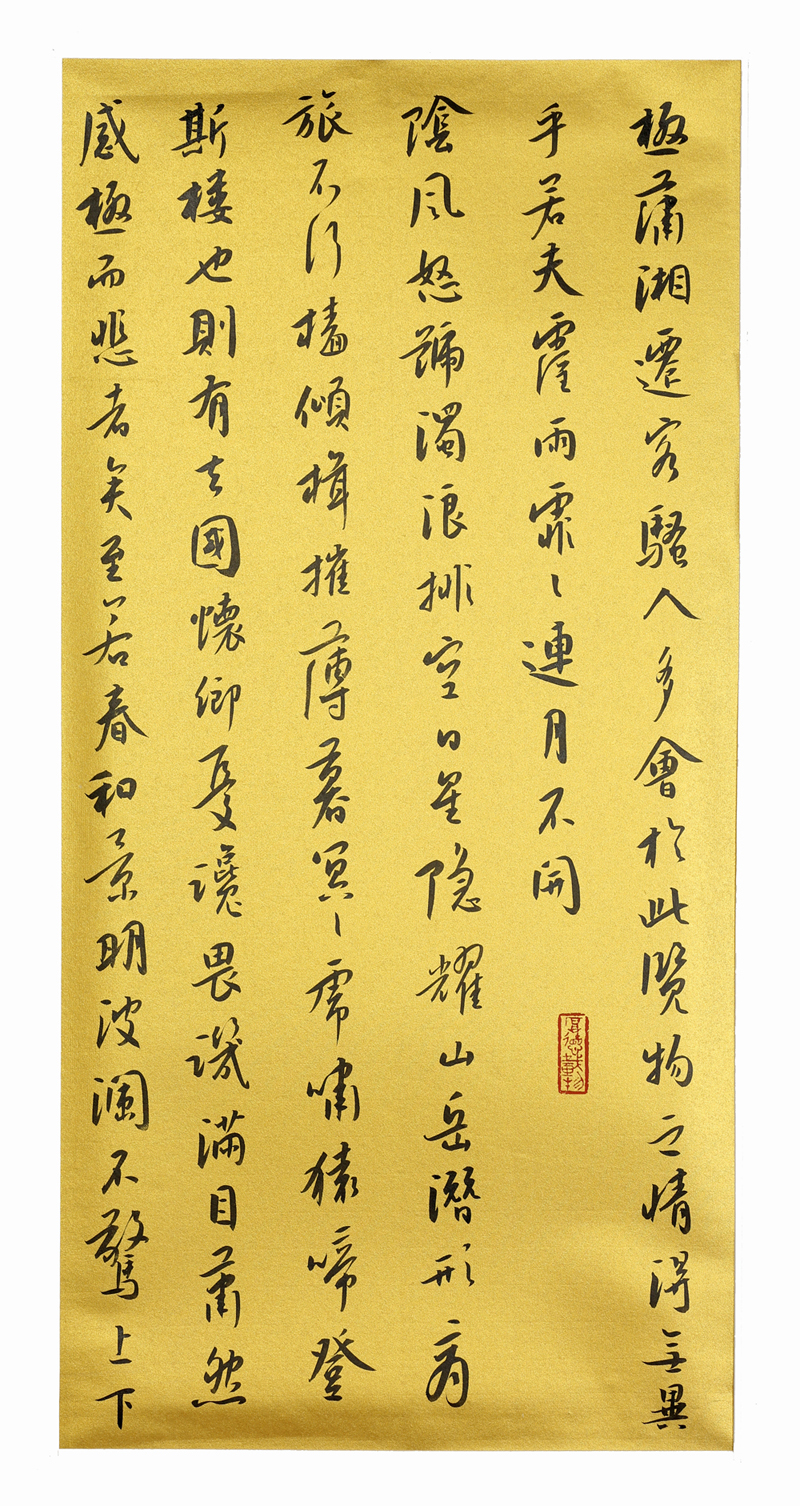 極瀟湘遷客騷人多會於此覽物之情得無異
乎若夫霪雨霏〻連月不開
陰風怒號濁浪排空日星隐耀山岳潛形商
旅不行檣傾楫摧薄暮冥〻虎嘯猿啼登
斯楼也則有去國懷鄉憂讒畏譏滿目蕭然
感極而悲者矣至若春和景明波瀾不驚上下
厚德載物